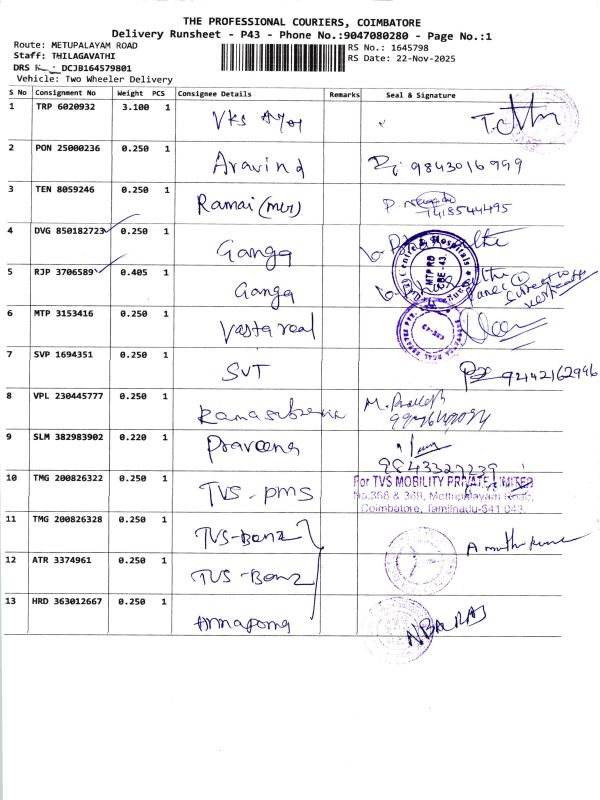 THE PROFESSIONAL COURIERS, COIMBATORE
Delivery Runsheet - P43 - Phone No.:9047080280 - Page No.:1
Route: METUPALAYAM ROAD
RS No.: 1645798
Staff: THILAGAVATHI
RS Date: 22-Nov-2025
DRS DCJB164579801
Vehicle: Two Wheeler Delivery
S No Consignment No Weight PCS Consignee Details Remarks Seal & Signature
1 TRP 6020932 3.100 1 Vks
2 PON 25000236 0.250 1 Aravind 9843016999
3 TEN 8059246 0.250 1 Ramai P.
7418544495
4 DVG 850182723 0.250 1 Ganga
5 RJP 3706589 0.405 1 Ganga
MTP RD
CBE-43.
6 MTP 3153416 0.250 1 Vasta real
7 SVP 1694351 0.250 1 SVT 92142162946
8 VPL 230445777 0.250 1 M.
9 SLM 382983902 0.220 1 Praveena
9843327239
10 TMG 200826322 0.250 1 TVS-pms For TVS MOBILITY PRIVATE LIMITED
No.368 & 369, Mettupalayam Road,
Coimbatore, Tamilnadu-641 043.
11 TMG 200826328 0.250 1 TVS-Benz
12 ATR 3374961 0.250 1 TVS-Benz
13 HRD 363012667 0.250 1 Annapoorna